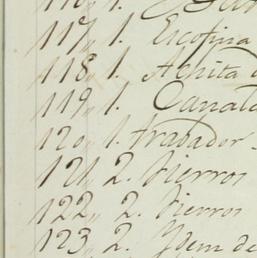 117,, 1. Escofina
118,, 1. Achita
119,, 1. Canala
120,, 1. Trabador
121,, 2. Fierros
122,, 2. Fierros
123,, 2. Ydem de